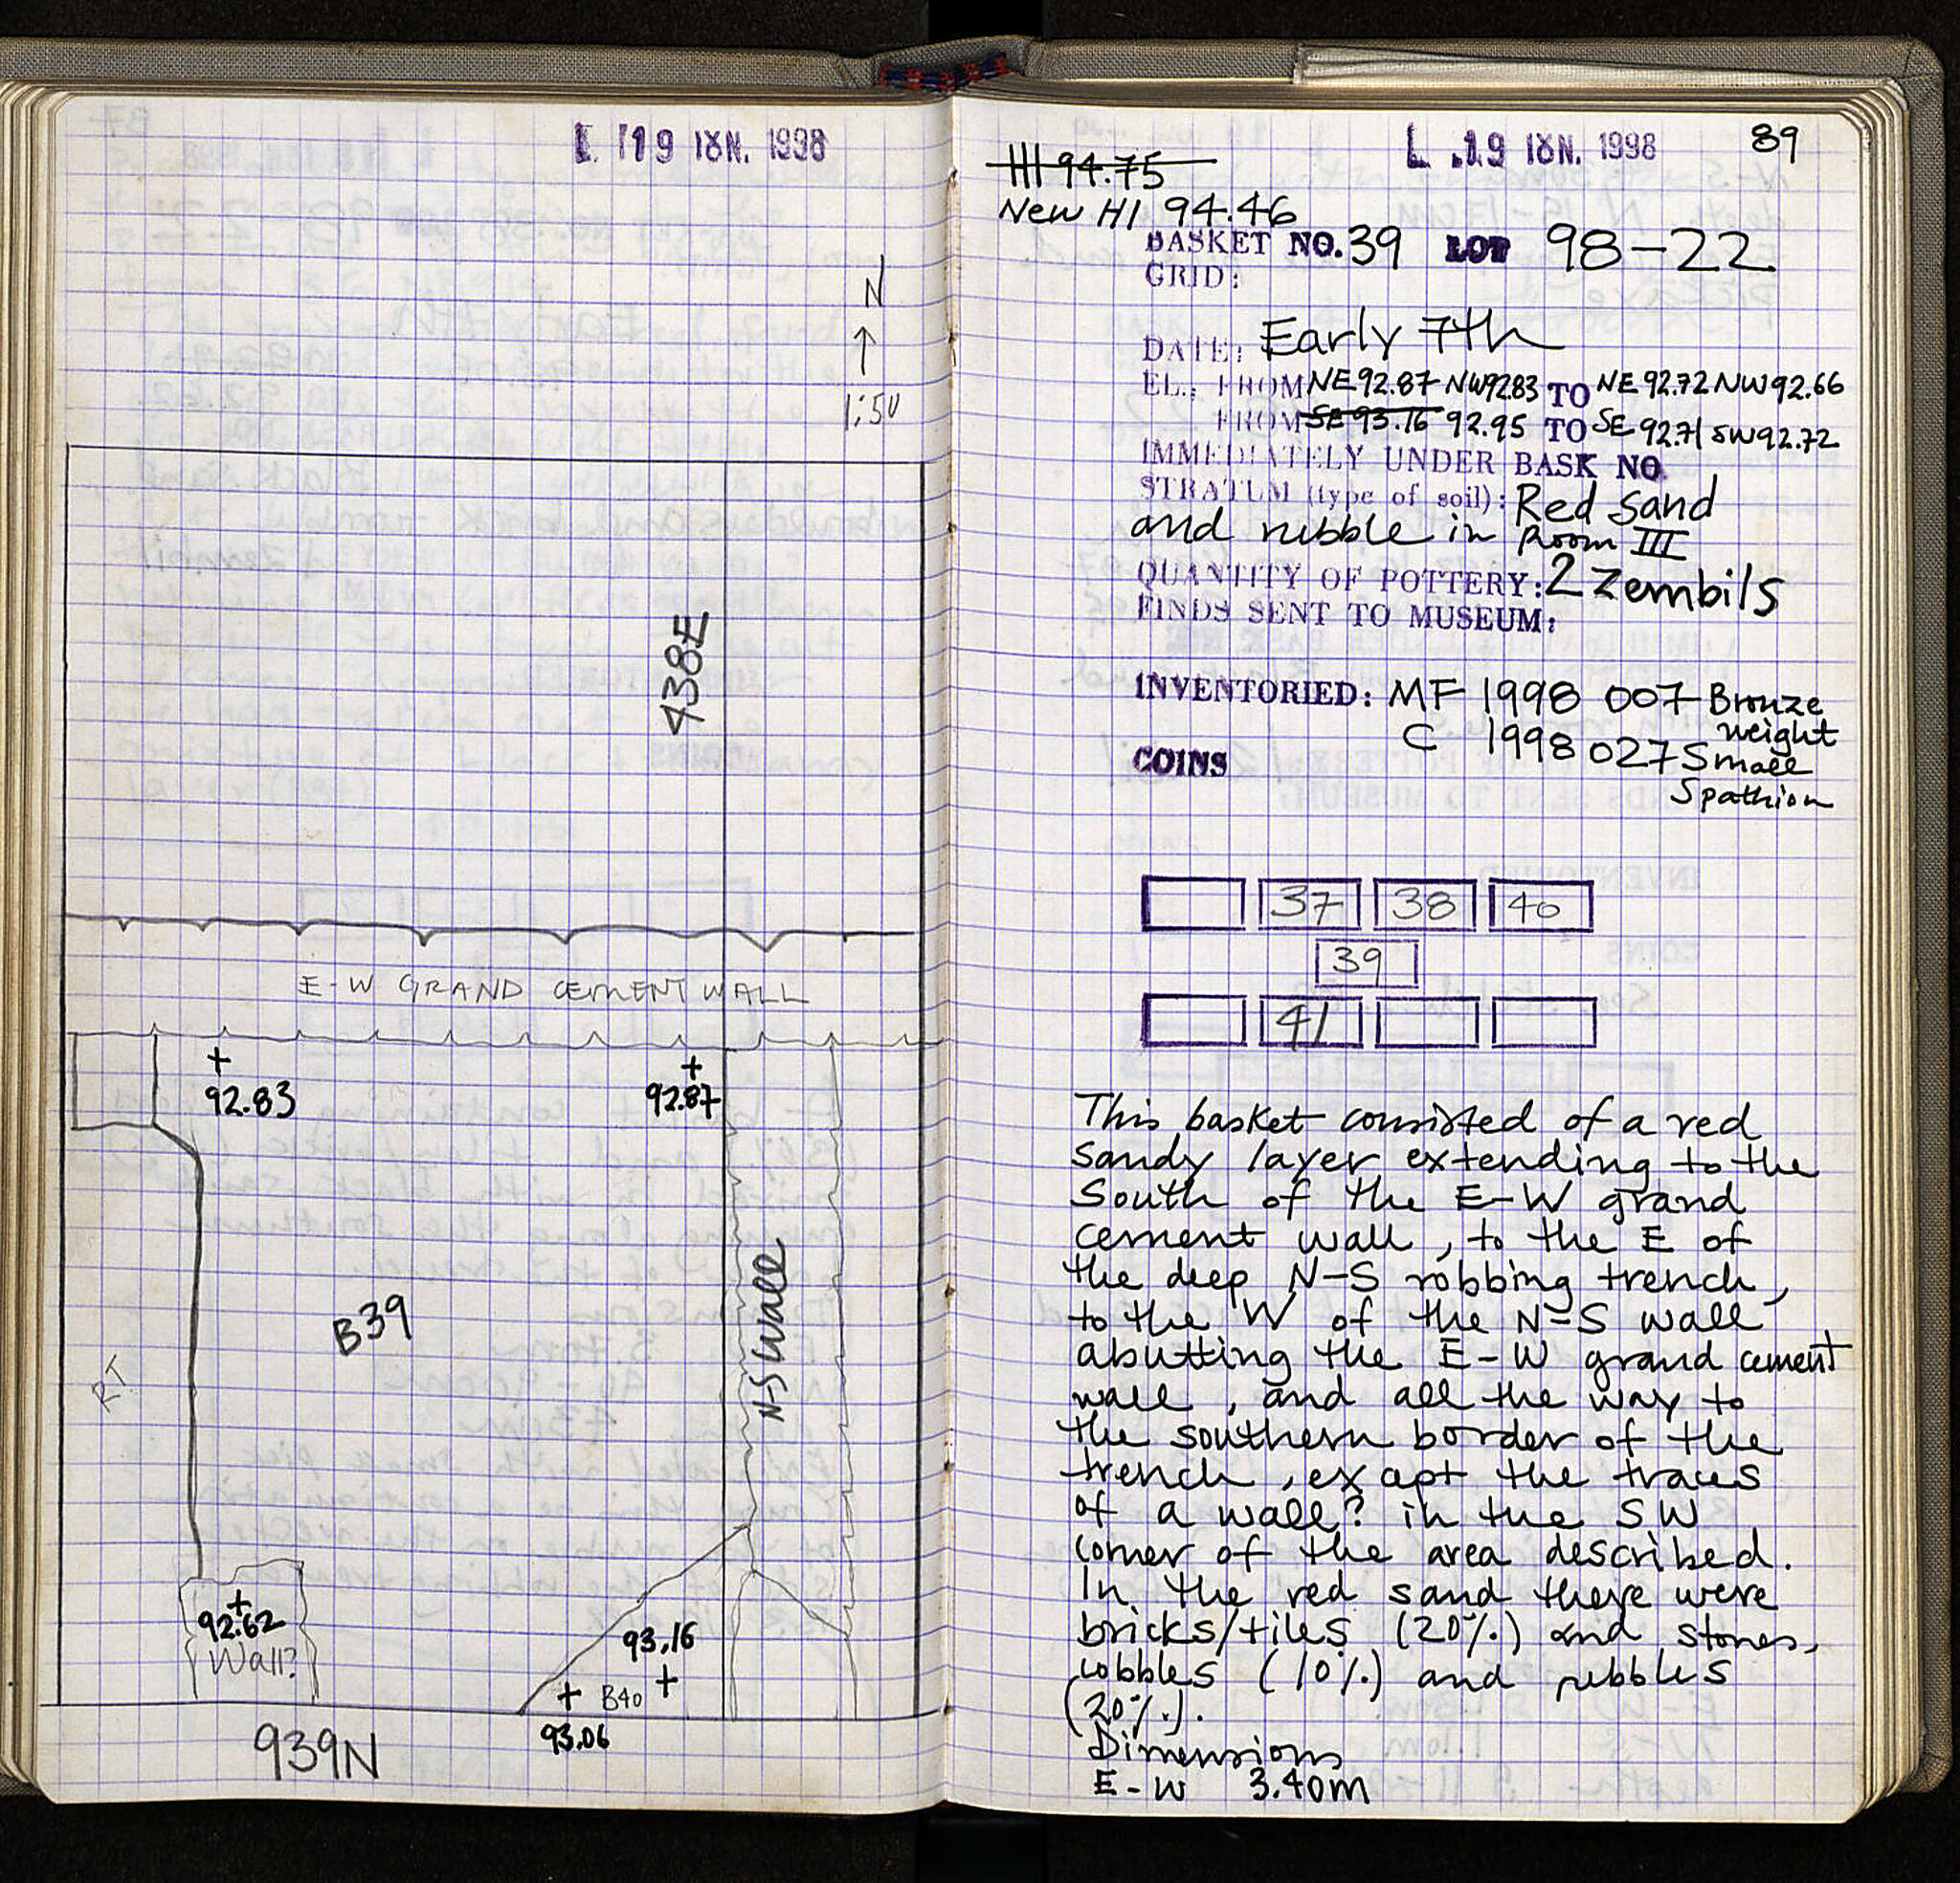 19 ΙΟΥΝ. 1998
N
1:50
438E
E-W GRAND CEMENT WALL
92.83
92.87
N-S wall
B39
RT
92.62
Wall?
93.16
B40
93.06
939N
19 ΙΟΥΝ. 1998
89
HI 94.75
New HI 94.46
BASKET NO. 39 LOT 98-22
GRID:
DATE: Early 7th
EL.: FROM NE 92.87 NW 92.83 TO NE 92.72 NW 92.66
FROM SE 93.16 92.95 TO SE 92.71 SW 92.72
IMMEDIATELY UNDER BASK NO.
STRATUM (type of soil): Red sand
and rubble in Room III
QUANTITY OF POTTERY: 2 zembils
FINDS SENT TO MUSEUM:
INVENTORIED: MF 1998 007 Bronze
weight
C 1998 027 Small
Spathion
COINS
37 38 40
39
41
This basket consisted of a red
sandy layer extending to the
South of the E-W grand
cement wall, to the E of
the deep N-S robbing trench,
to the W of the N-S wall
abutting the E-W grand cement
wall, and all the way to
the southern border of the
trench, except the traces
of a wall? in the SW
corner of the area described.
In the red sand there were
bricks/tiles (20%) and stones,
cobbles (10%) and pebbles
(20%).
Dimensions
E-W 3.40m